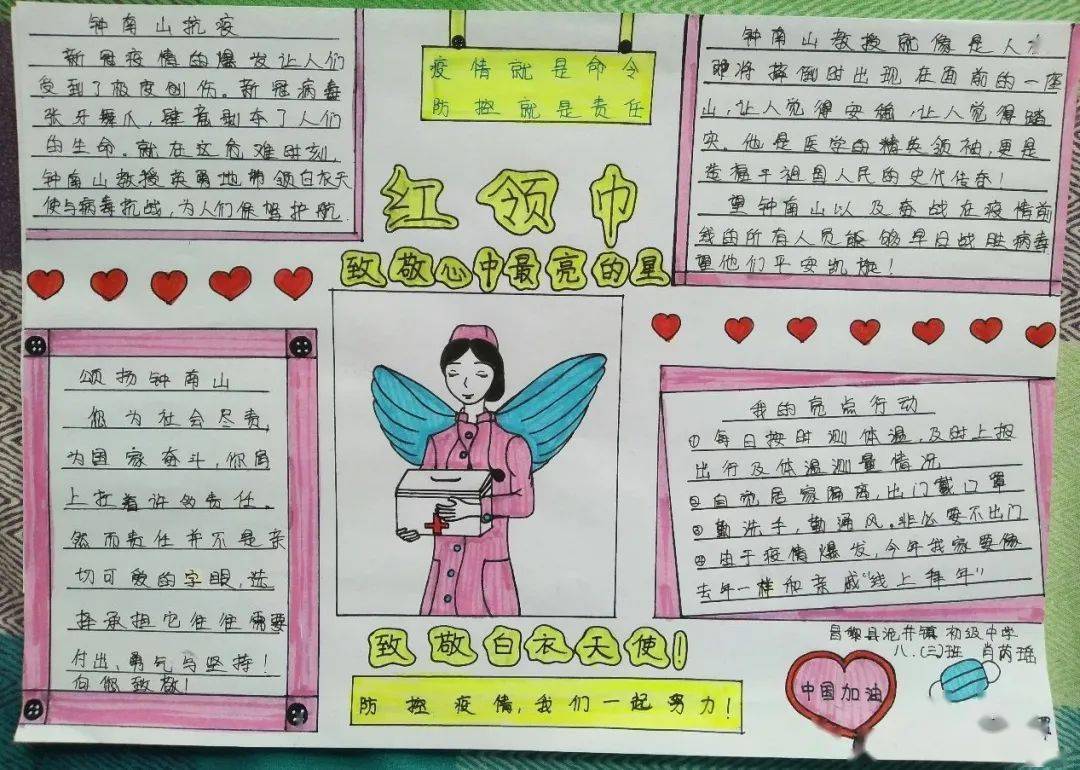 钟南山抗疫
新冠疫情的爆发让人们
受到了极度创伤。新冠病毒
张牙舞爪,肆意剥夺了人们
的生命。就在这危难时刻,
钟南山教授英勇地带领白衣天
使与病毒抗战,为人们保驾护航.
疫情就是命令
防控就是责任
红领巾
致敬心中最亮的星
钟南山教授就像是人
即将摔倒时出现在面前的一座
山,让人觉得安稳,让人觉得踏
实。他是医学的精英领袖,更是
造福于祖国人民的史代传奇!
望钟南山以及奋战在疫情前
线的所有人员能够早日战胜病毒
望他们平安凯旋!
颂扬钟南山
您为社会尽责,
为国家奋斗,你肩
上扛着许多责任。
然而责任并不是亲
切可爱的字眼,选
择承担它往往需要
付出、勇气与坚持!
向您致敬!
我的亮点行动
①每日按时测体温,及时上报
出行及体温测量情况
②自觉居家隔离,出门戴口罩
③勤洗手,勤通风。非必要不出门
④由于疫情爆发,今年我家要像
去年一样和亲戚“线上拜年”
致敬白衣天使!
防控疫情,我们一起努力!
昌黎县泥井镇初级中学
八.(三)班 肖芮瑶
中国加油